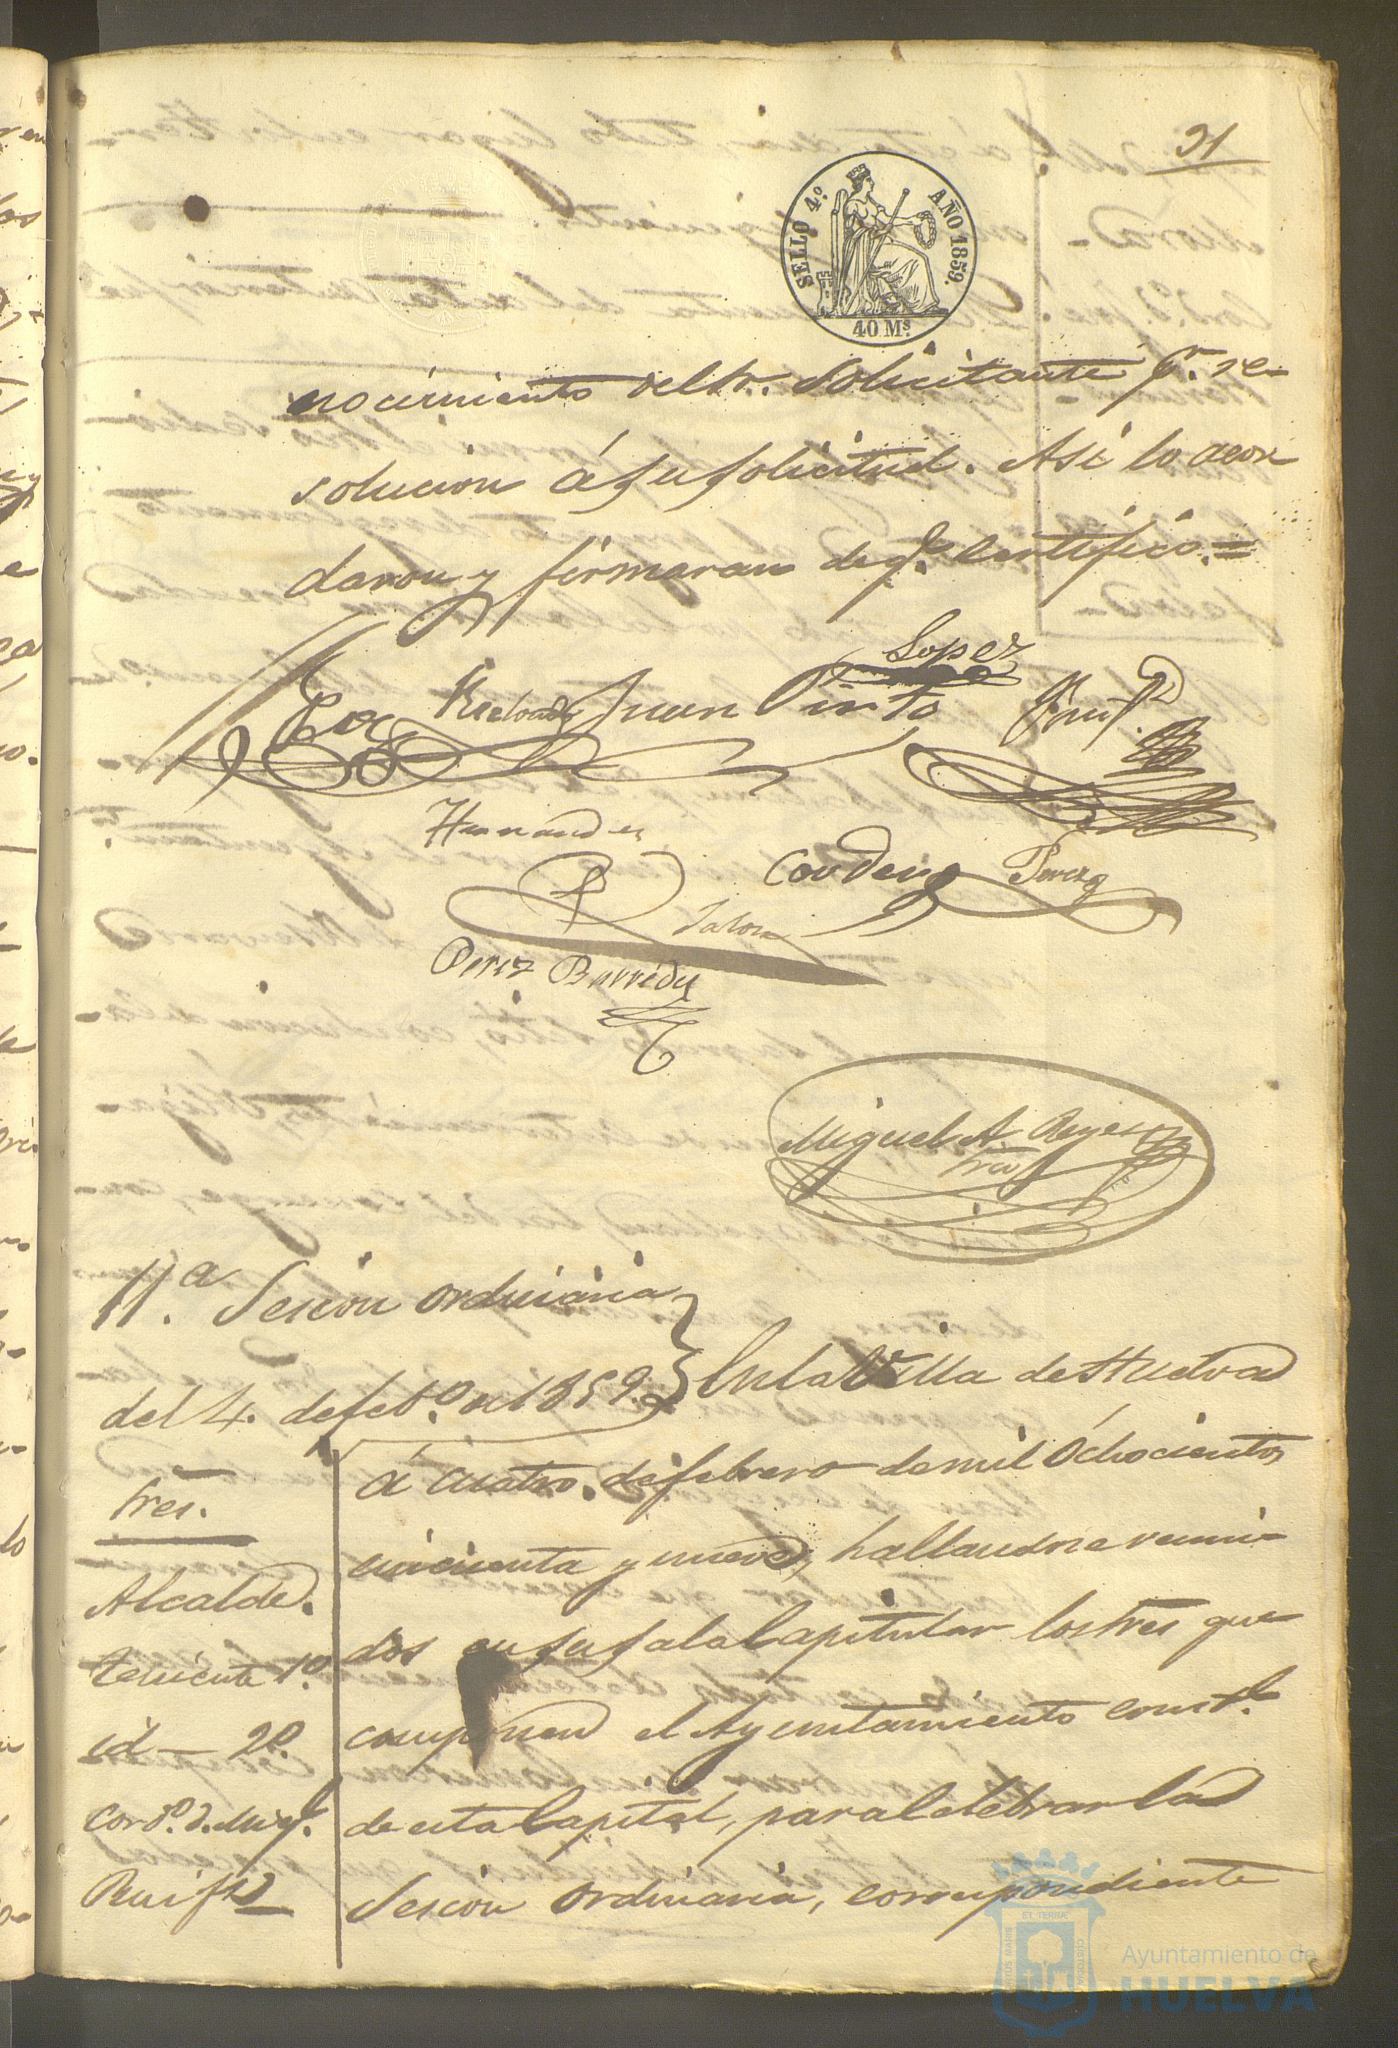 31
SELLO 4.º AÑO 1859.
40 Ms.
nocimiento del Sr. Solicitante pr. re-
solucion á su solicitud. Así lo acor
daron y firmaran de qe. certifico.=
Lopez
Juan Pinto
Hernandez
Perez
Perez Barreda
Miguel A. Reyes
Srio
11.ª Sesion ordinaria
del 4. de febo. de 1859.
En la Villa de Huelva
á cuatro de febrero de mil ochocientos
cincuenta y nueve, hallandose reuni-
dos en su sala Capitular los Sres que
componen el Ayuntamiento constl.
de esta Capital, para celebrar la
Sesion ordinaria, correspondiente
Sres.
Alcalde.
Teniente 1º.
id — 2º.
Cordo. d. Migl.
Ruifz
Ayuntamiento de
HUELVA